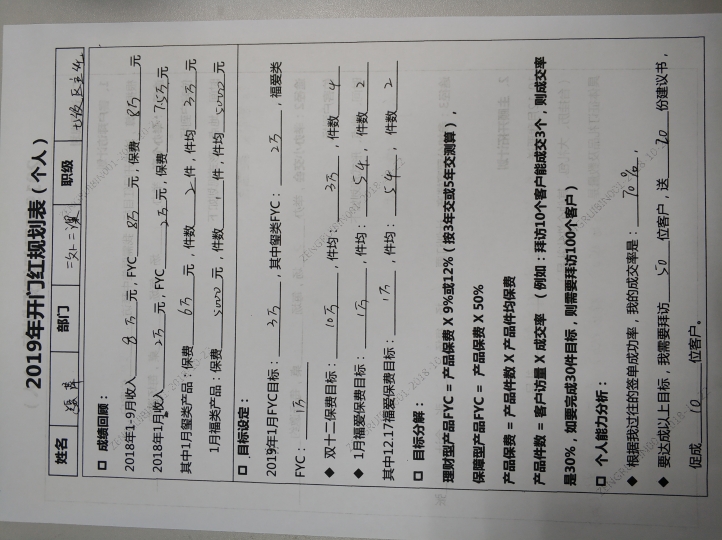 2019年开门红规划表(个人)
姓名 部门 三外三课 职级
□ 成绩回顾:
2018年1-9月收入 8万 元, FYC 8万 元, 保费 8万 元
2018年1月收入 2万 元, FYC 2万 元, 保费 元
其中1月玺类产品:保费 6万 元, 件数 2 件, 件均 3万 元
1月福类产品:保费 5000 元, 件数 1 件, 件均 5000 元
□ 目标设定:
2019年1月FYC目标: 3万 , 其中玺类FYC: 2万 , 福爱类
FYC: 1万
◆ 双十二保费目标: 10万 , 件均: 3万 , 件数 4
◆ 1月福爱保费目标: 1万 , 件均: , 件数 2
其中12.17福爱保费目标: 1万 , 件均: , 件数 2
□ 目标分解:
理财型产品FYC = 产品保费 X 9%或12%(按3年交或5年交测算),
保障型产品FYC = 产品保费 X 50%
产品保费 = 产品件数 X 产品件均保费
产品件数 = 客户访量 X 成交率 (例如:拜访10个客户能成交3个,则成交率
是30%,如要完成30件目标,则需要拜访100个客户)
□ 个人能力分析:
◆ 根据我过往的签单成功率,我的成交率是: 70% ,
◆ 要达成以上目标,我需要拜访 50 位客户,送 20 份建议书,
促成 10 位客户。